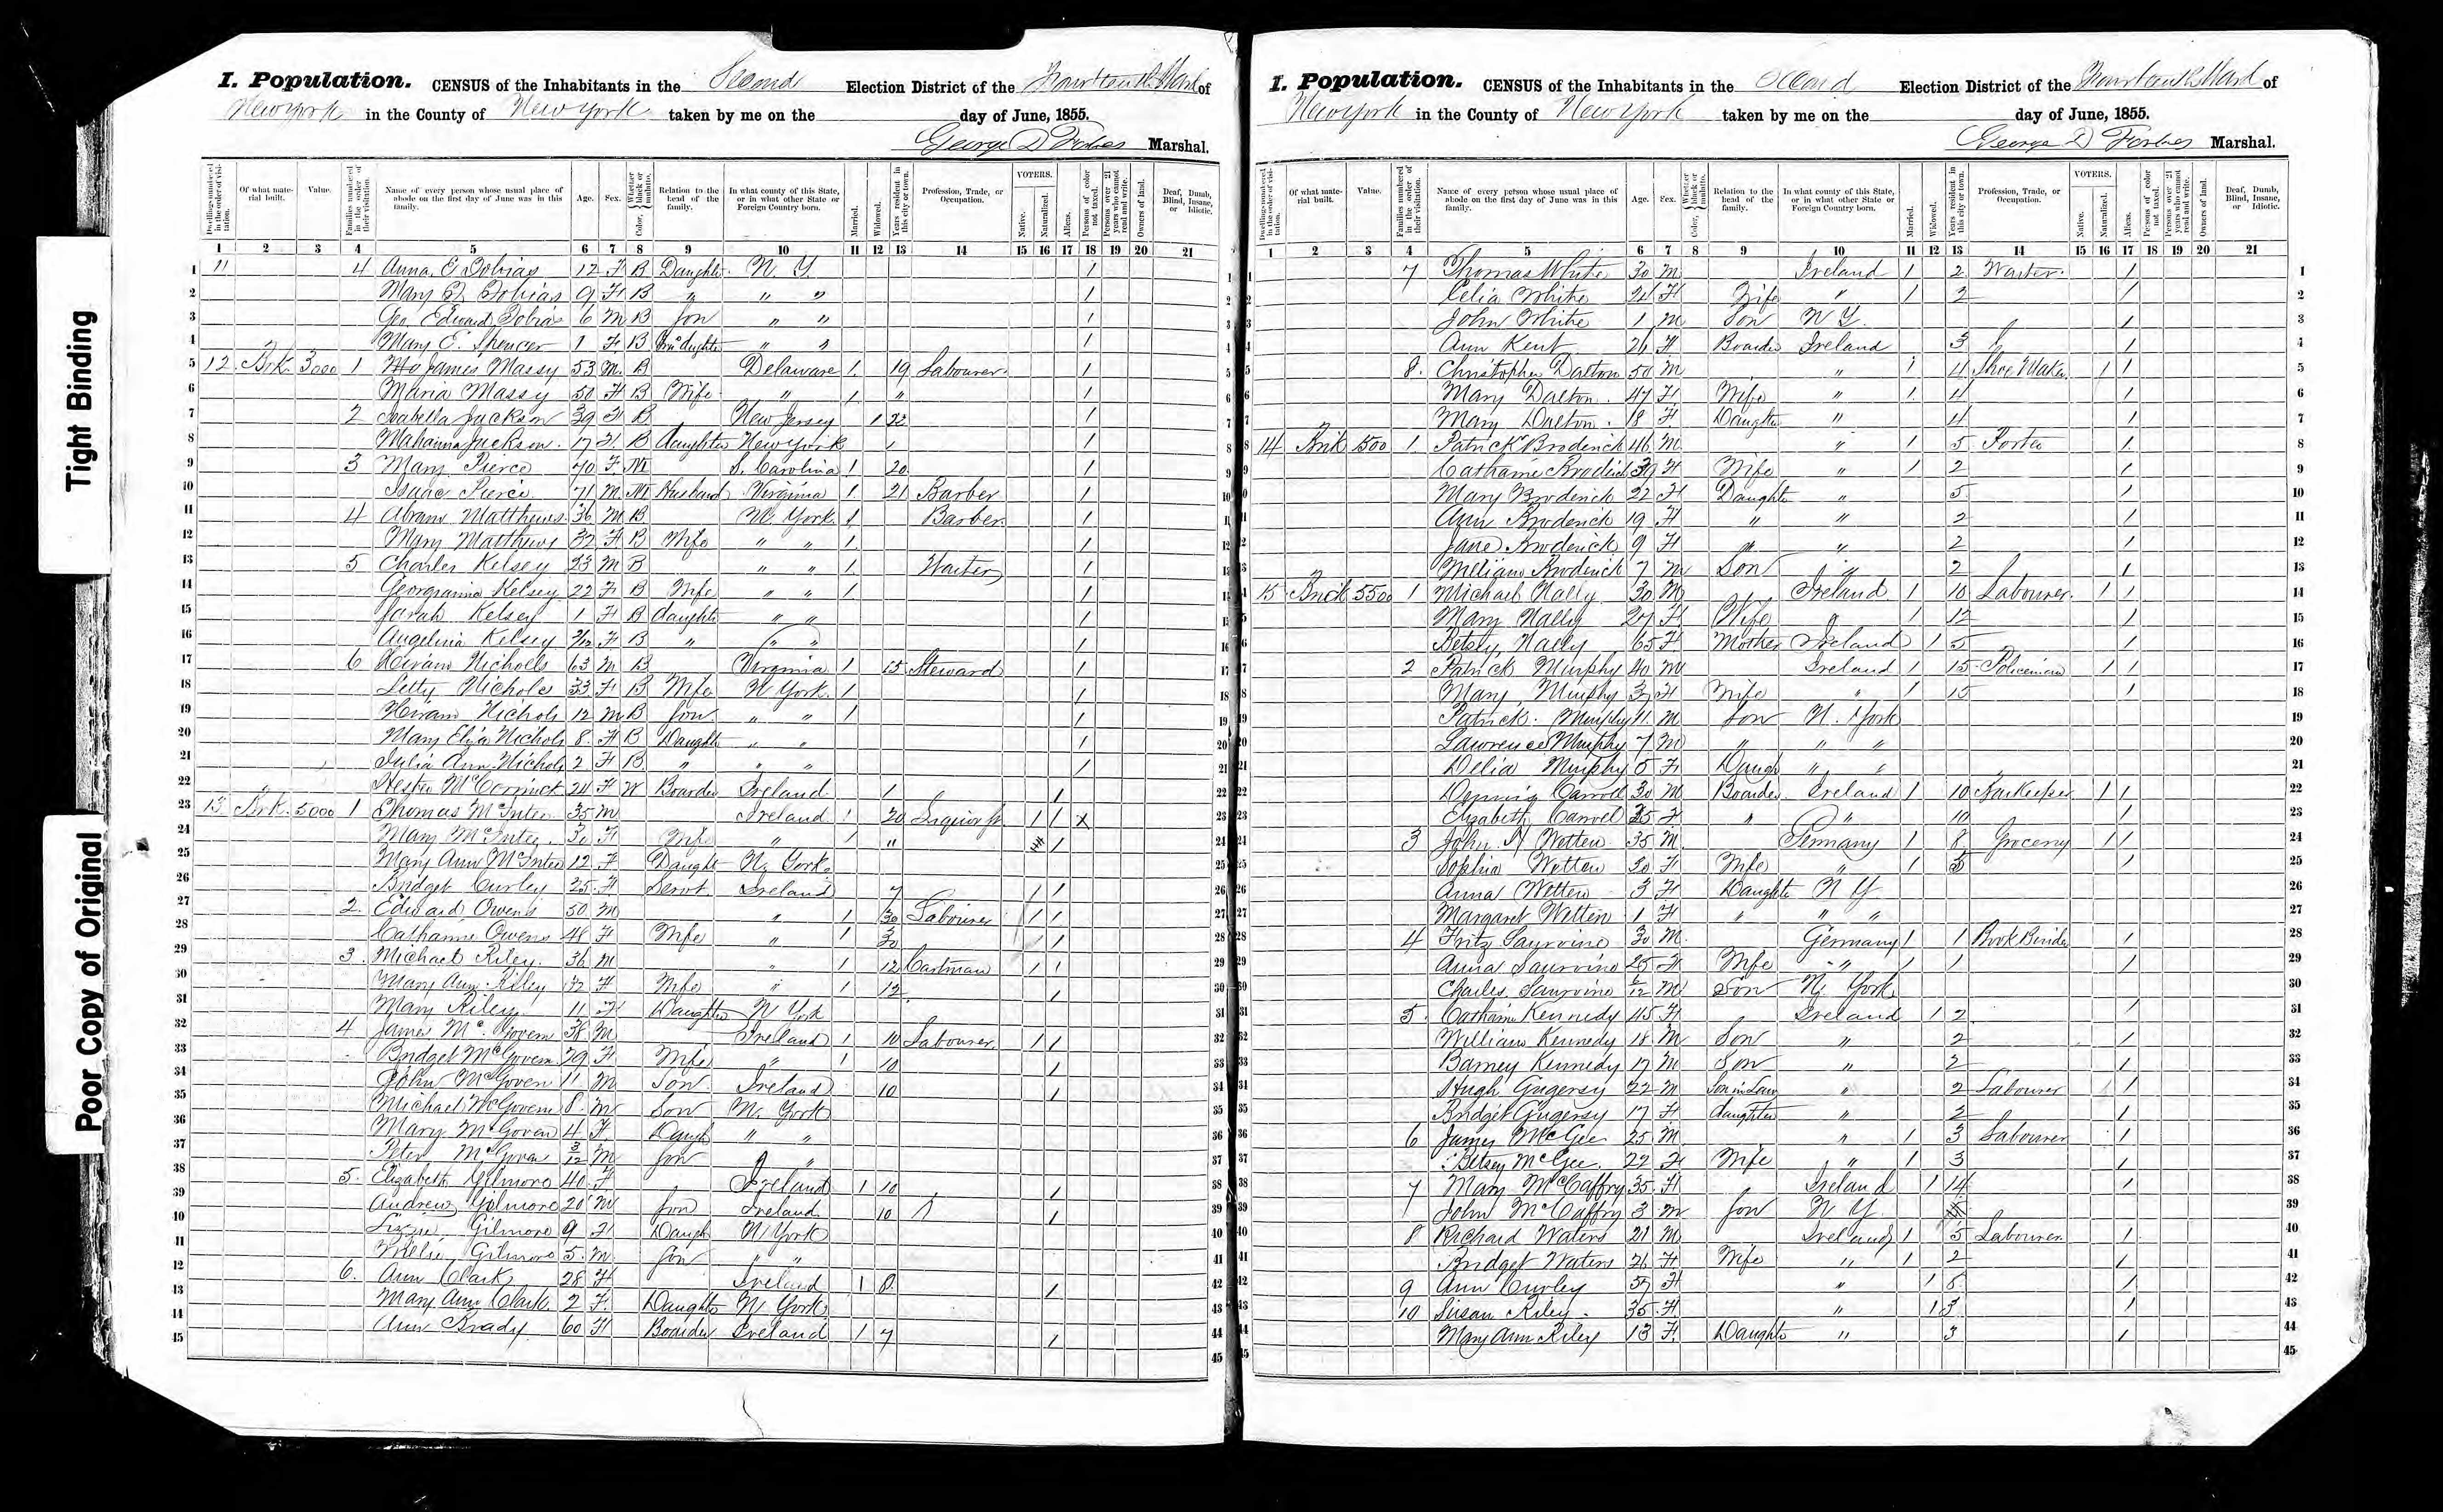 Tight Binding
Poor Copy of Original
I. Population. CENSUS of the Inhabitants in the Second Election District of the Fourteenth Ward of
New York in the County of New York taken by me on the day of June, 1855.
George D Forbes Marshal.
Dwellings numbered in the order of visitation. Of what material built. Value. Families numbered in the order of their visitation. Name of every person whose usual place of abode on the first day of June was in this family. Age. Sex. Color, Whether black or mulatto. Relation to the head of the family. In what county of this State, or in what other State or Foreign Country born. Married. Widowed. Years resident in this city or town. Profession, Trade, or Occupation. VOTERS. Native. Naturalized. Aliens. Persons of color not taxed. Persons over 21 years who cannot read and write. Owners of land. Deaf, Dumb, Blind, Insane, or Idiotic.
1 2 3 4 5 6 7 8 9 10 11 12 13 14 15 16 17 18 19 20 21
1 11 4 Anna E Tobias 12 F B Daughter N Y. 1
2 Mary Tobias 9 F B " " " 1
3 Geo Edward Tobias 6 M B Son " " 1
4 Mary E. Spencer 1 F B " " 1
5 12 Brk. 3000 1 James Massy 53 M. B Delaware 1. 19 Labourer 1
6 Maria Massy 50 F B Wife " 1 " 1
7 2 Isabella Jackson 39 F B New Jersey 1 22 1
8 Jackson 17 F. B daughter New York 1 1
9 3 Mary Pierce 70 F. M S. Carolina 1 20 1
10 Isaac Pierce 71 M. M Husband Virginia 1. 21 Barber 1
11 4 Abram Matthews 36 M B N. York 1 Barber 1
12 Mary Matthews 32 F B Wife " " 1. 1
13 5 Charles Kelsey 23 M B " " 1. Waiter 1
14 Georgianna Kelsey 22 F B Wife " " 1 1
15 Sarah Kelsey 1 F B daughter " " 1
16 Angelina Kelsey F B " " " 1
17 6 Hiram Nichols 63 M B Virginia 1 15 Steward 1
18 Letty Nichols 33 F B Wife N York. 1 1
19 Hiram Nichols 12 M B Son " " 1 1
20 Mary Eliza Nichols 8. F B Daught " " 1
21 Julia Ann Nichols 2 F B " " " 1
22 Hester McCormick 24 F W Boarder Ireland 1 1
23 13 Brk. 5000 1 Thomas McIntee 35 M Ireland 1 20 Liquor 1 1 x
24 Mary McIntee 30 F Wife " 1 " 1
25 Mary Ann McIntee 12 F Daught N. York
26 Bridget Curley 25 F Servt. Ireland 7 1 1
27 2. Edward Owens 50 M " 1 30 Labourer 1 1
28 Catharine Owens 48 F Wife " 1 30 1 1
29 3. Michael Riley 36 M " 1 12 Cartman 1 1
30 Mary Ann Riley 32 F Wife " 1 12 1
31 Mary Riley 11 F Daughter N York
32 4 James McGovern 38 M Ireland 1 10 Labourer 1 1
33 Bridget McGovern 29 F Wife " 1 10 1
34 John McGovern 11 M Son Ireland 10 1
35 Michael McGovern 8. M Son N. York
36 Mary McGovern 4 F. Daugh " "
37 Peter McGovern 3/12 M Son " "
38 5. Elizabeth Gilmore 40 F Ireland 1 10 1
39 Andrew Gilmore 20 M Son Ireland 10 1
40 Lizzie Gilmore 9 F Daugh N York
41 Gilmore 5. M Son " "
42 6. Ann Clark 28 F Ireland 1 8 1
43 Mary Ann Clark 2 F. Daught N. York
44 Ann Brady 60 F Boarder Ireland 1 7 1
45
I. Population. CENSUS of the Inhabitants in the Second Election District of the Fourteenth Ward of
New York in the County of New York taken by me on the day of June, 1855.
George D Forbes Marshal.
Dwellings numbered in the order of visitation. Of what material built. Value. Families numbered in the order of their visitation. Name of every person whose usual place of abode on the first day of June was in this family. Age. Sex. Color, Whether black or mulatto. Relation to the head of the family. In what county of this State, or in what other State or Foreign Country born. Married. Widowed. Years resident in this city or town. Profession, Trade, or Occupation. VOTERS. Native. Naturalized. Aliens. Persons of color not taxed. Persons over 21 years who cannot read and write. Owners of land. Deaf, Dumb, Blind, Insane, or Idiotic.
1 2 3 4 5 6 7 8 9 10 11 12 13 14 15 16 17 18 19 20 21
1 7 Thomas White 30 M Ireland 1 2 Waiter 1 1
2 Celia White 24 F Wife " 1 2 1 2
3 John White 1 M Son N Y. 1 3
4 Ann Kent 26 F Boarder Ireland 3 1 4
5 8. Christopher Dalton 50 M " 1 4 Shoe Maker 1 1 5
6 Mary Dalton 47 F Wife " 1 4 1 6
7 Mary Dalton 18 F Daughter " 4 1 7
8 14 Brik 1500 1. Patrick Broderick 46 M " 1 5 Porter 1 8
9 Catharine Broderick 39 F Wife " 1 2 1 9
10 Mary Broderick 22 F Daughter " 5 1 10
11 Ann Broderick 19 F " " 2 1 11
12 Jane Broderick 9 F " " 2 1 12
13 William Broderick 7 M Son " 2 1 13
14 15 Brick 5500 1 Michael Nally 30 M Ireland 1 10 Labourer 1 1 14
15 Mary Nally 27 F Wife " 12 1 15
16 Betsey Nally 65 F Mother Ireland 1 5 1 16
17 2 Patrick Murphy 40 M Ireland 1 15 Policeman 1 1 17
18 Mary Murphy 37 F Wife " 1 15 1 18
19 Patrick Murphy 11. M Son N. York 19
20 Lawrence Murphy 7 M " " " 20
21 Delia Murphy 5 F Daugh " " 21
22 Carroll 30 M Boarder Ireland 1 10 Barkeeper 1 1 22
23 Elizabeth Carroll 25 F " " 10 1 23
24 3 John H Wetten 35 M Germany 1 8 Grocery 1 1 24
25 Sophia Wetten 30 F Wife " 1 5 1 25
26 Anna Wetten 3 F Daughter N Y 26
27 Margaret Wetten 1 F " " " 27
28 4 Fritz Saurvino 30 M. Germany 1 1 Book Binder 1 28
29 Anna Saurvino 25 F Wife " 1 1 1 29
30 Charles Saurvino M Son N. York 30
31 5. Catharine Kennedy 45 F Ireland 1 2 1 31
32 William Kennedy 18 M Son " 2 1 32
33 Barney Kennedy 17 M Son " 2 1 33
34 Hugh Gugersy 22 M Son in Law " 2 Labourer 1 34
35 Bridget Gugersy 17 F daughter " 2 1 35
36 6 James McGee 25 M " 1 3 Labourer 1 36
37 Betsey McGee 22 F Wife " 1 3 1 37
38 7 Mary McCaffry 35 F Ireland 1 14 1 38
39 John McCaffry 3 M Son N Y. 39
40 8 Richard Waters 21 M Ireland 1 5 Labourer 1 40
41 Bridget Waters 26 F Wife " 1 2 1 41
42 9 Ann Curley 57 F " 1 8 1 42
43 10 Susan Riley 35 F " 1 3 1 43
44 Mary Ann Riley 13 F. Daughter " 3 1 44
45 45